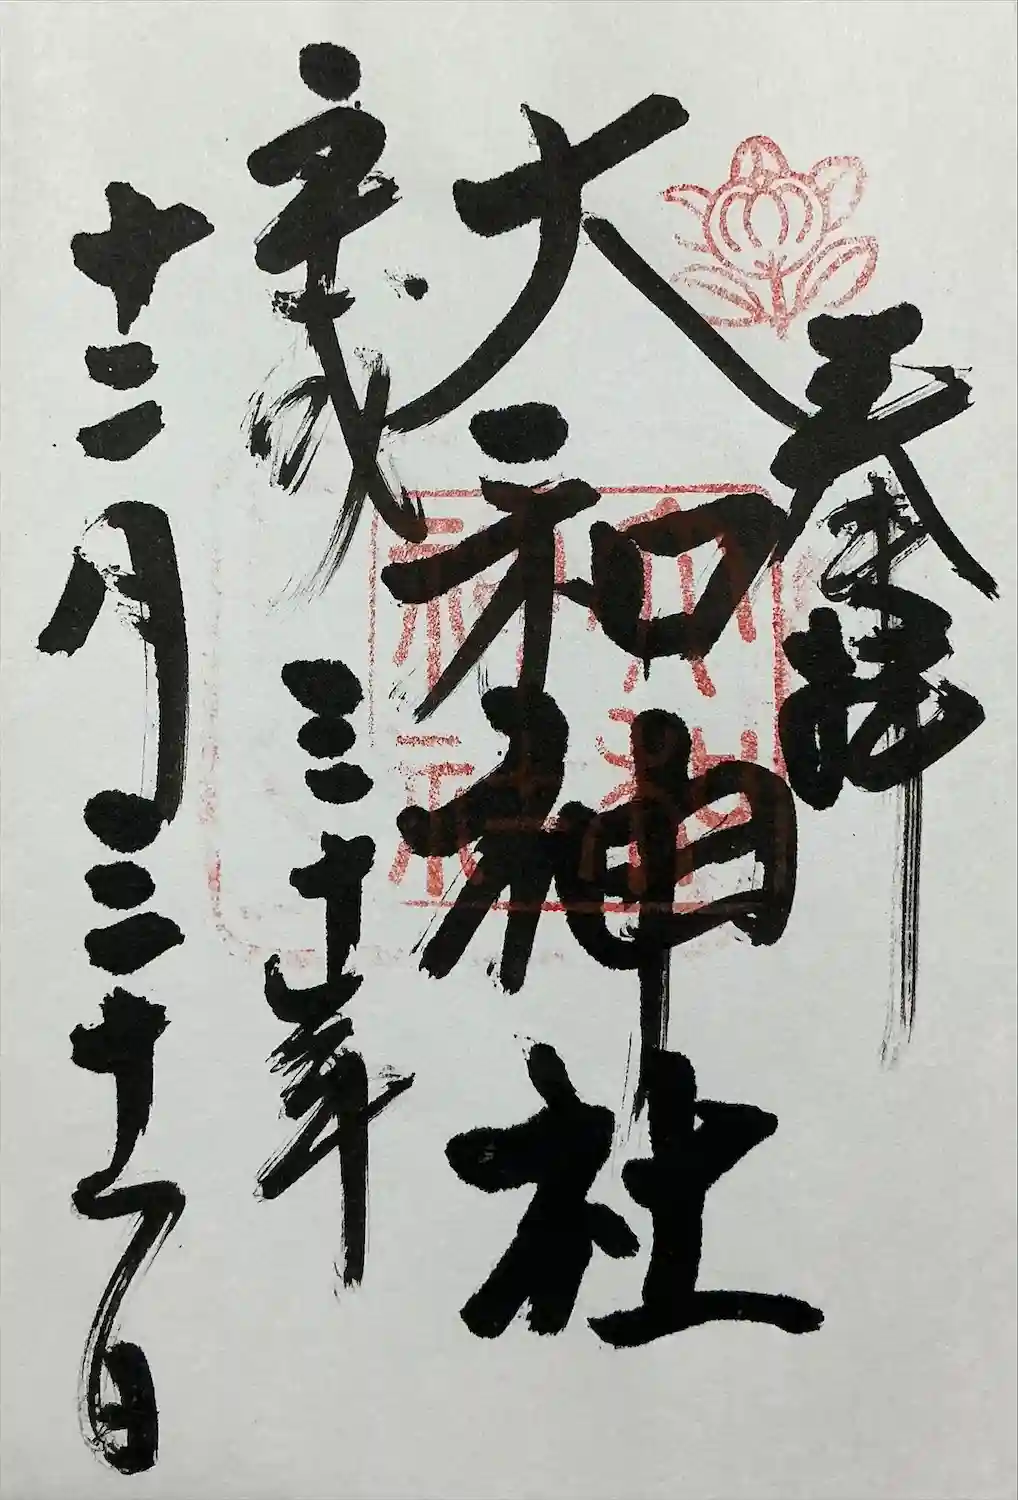 奉拝
大和神社
平成三十年
十二月三十一日